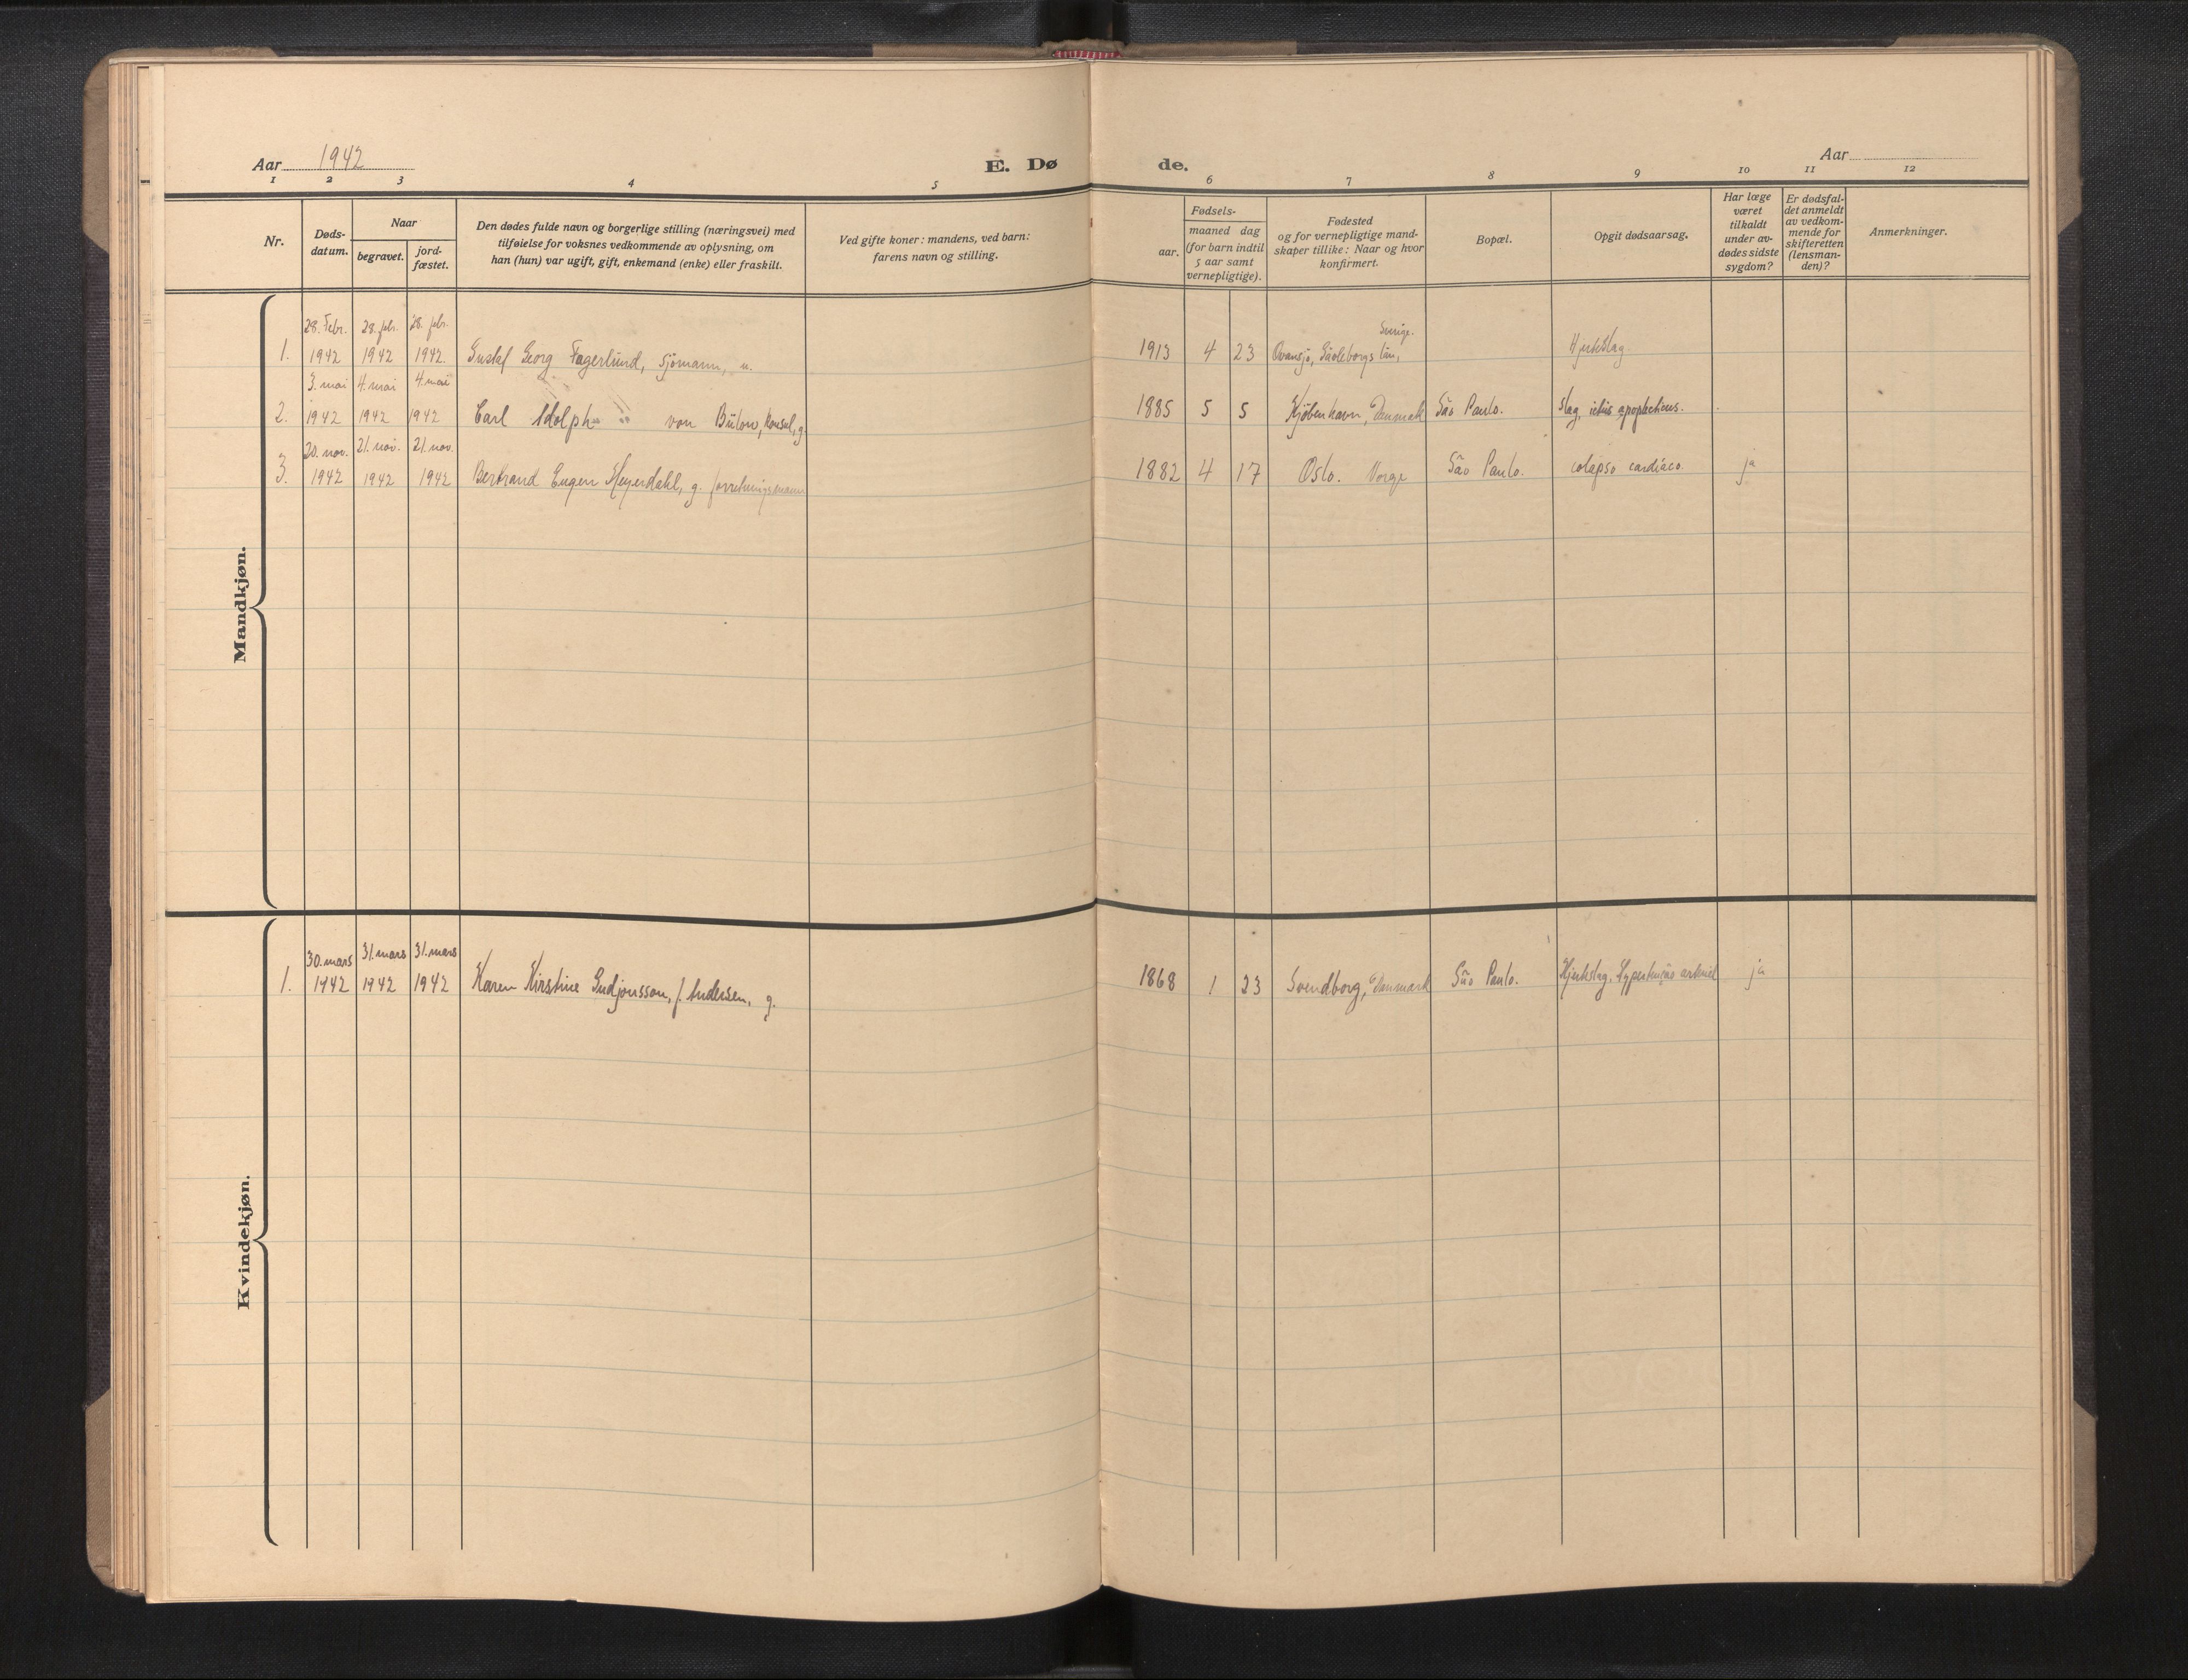 Aar 1942 E. Dø de. Aar
1 2 3 4 5 6 7 8 9 10 11 12
Nr.
Døds-
datum.
Naar
begravet.
jord-
fæstet.
Den dødes fulde navn og borgerlige stilling (næringsvei) med
tilføielse for voksnes vedkommende av oplysning, om
han (hun) var ugift, gift, enkemand (enke) eller fraskilt.
Ved gifte koner: mandens, ved barn:
farens navn og stilling.
Fødsels-
aar.
maaned dag
(for barn indtil
5 aar samt
vernepligtige).
Fødested
og for vernepligtige mand-
skaper tillike: Naar og hvor
konfirmert.
Bopæl.
Opgit dødsaarsag.
Har læge
været
tilkaldt
under av-
dødes sidste
sygdom?
Er dødsfal-
det anmeldt
av vedkom-
mende for
skifteretten
(lensman-
den)?
Anmerkninger.
Mandkjøn.
28. Febr. 28. febr. 28. febr. Sverige.
1. 1942 1942 1942. Gustaf Georg Fagerlund, sjömann, u. 1913 4 23 Ovansjö, Gäoleborgs län, Hjerteslag
3. mai 4. mai 4. mai
2. 1942 1942 1942 Carl Adolph von Bülow, konsul, g. 1885 5 5 Kjöbenhavn, Danmark São Paulo. Slag, ictus apoplecticus.
20. nov. 21. nov. 21. nov.
3. 1942 1942 1942 Bertrand Eugen Heyerdahl, g. forretningsmann 1882 4 17 Oslo. Norge São Paulo. colapso cardíaco. ja
Kvindekjøn.
30. mars 31. mars 31. mars
1. 1942 1942 1942 Karen Kirstine Gudjonsson, f. Andersen, g. 1868 1 23 Svendborg, Danmark São Paulo. Hjerteslag, Hypertensão arteriel ja